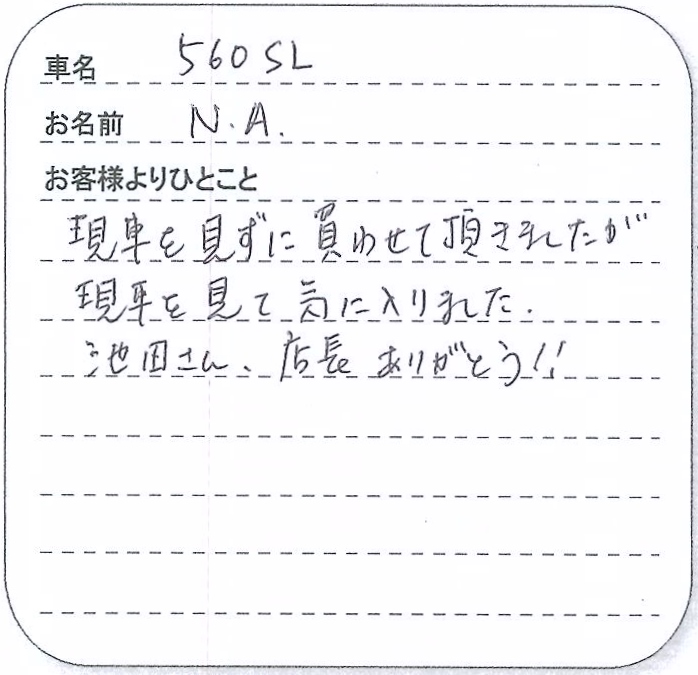 車名 560SL
お名前 N.A.
お客様よりひとこと
現車を見ずに買わせて頂きましたが
現車を見て気に入りました.
池田さん、店長ありがとう!!